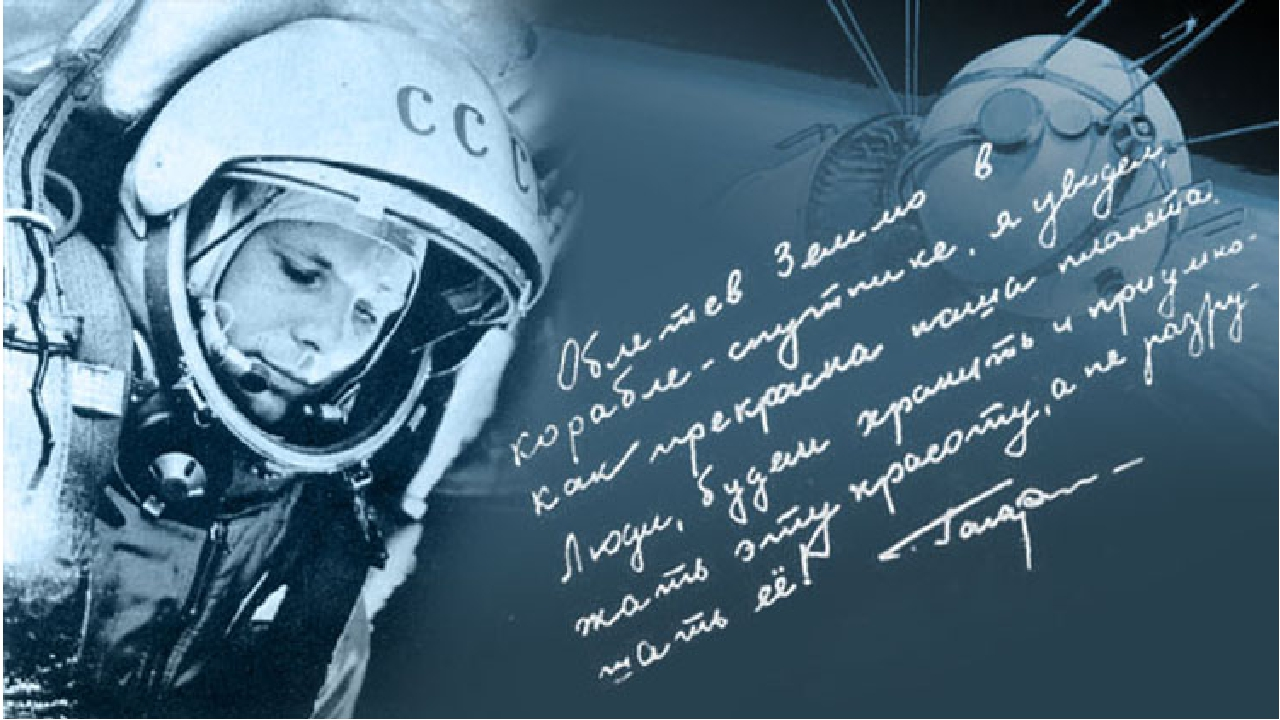 ССС
Облетев Землю в
корабле-спутнике, я увидел,
как прекрасна наша планета.
Люди, будем хранить и приумно-
жать эту красоту, а не разру-
шать её!
Гагарин